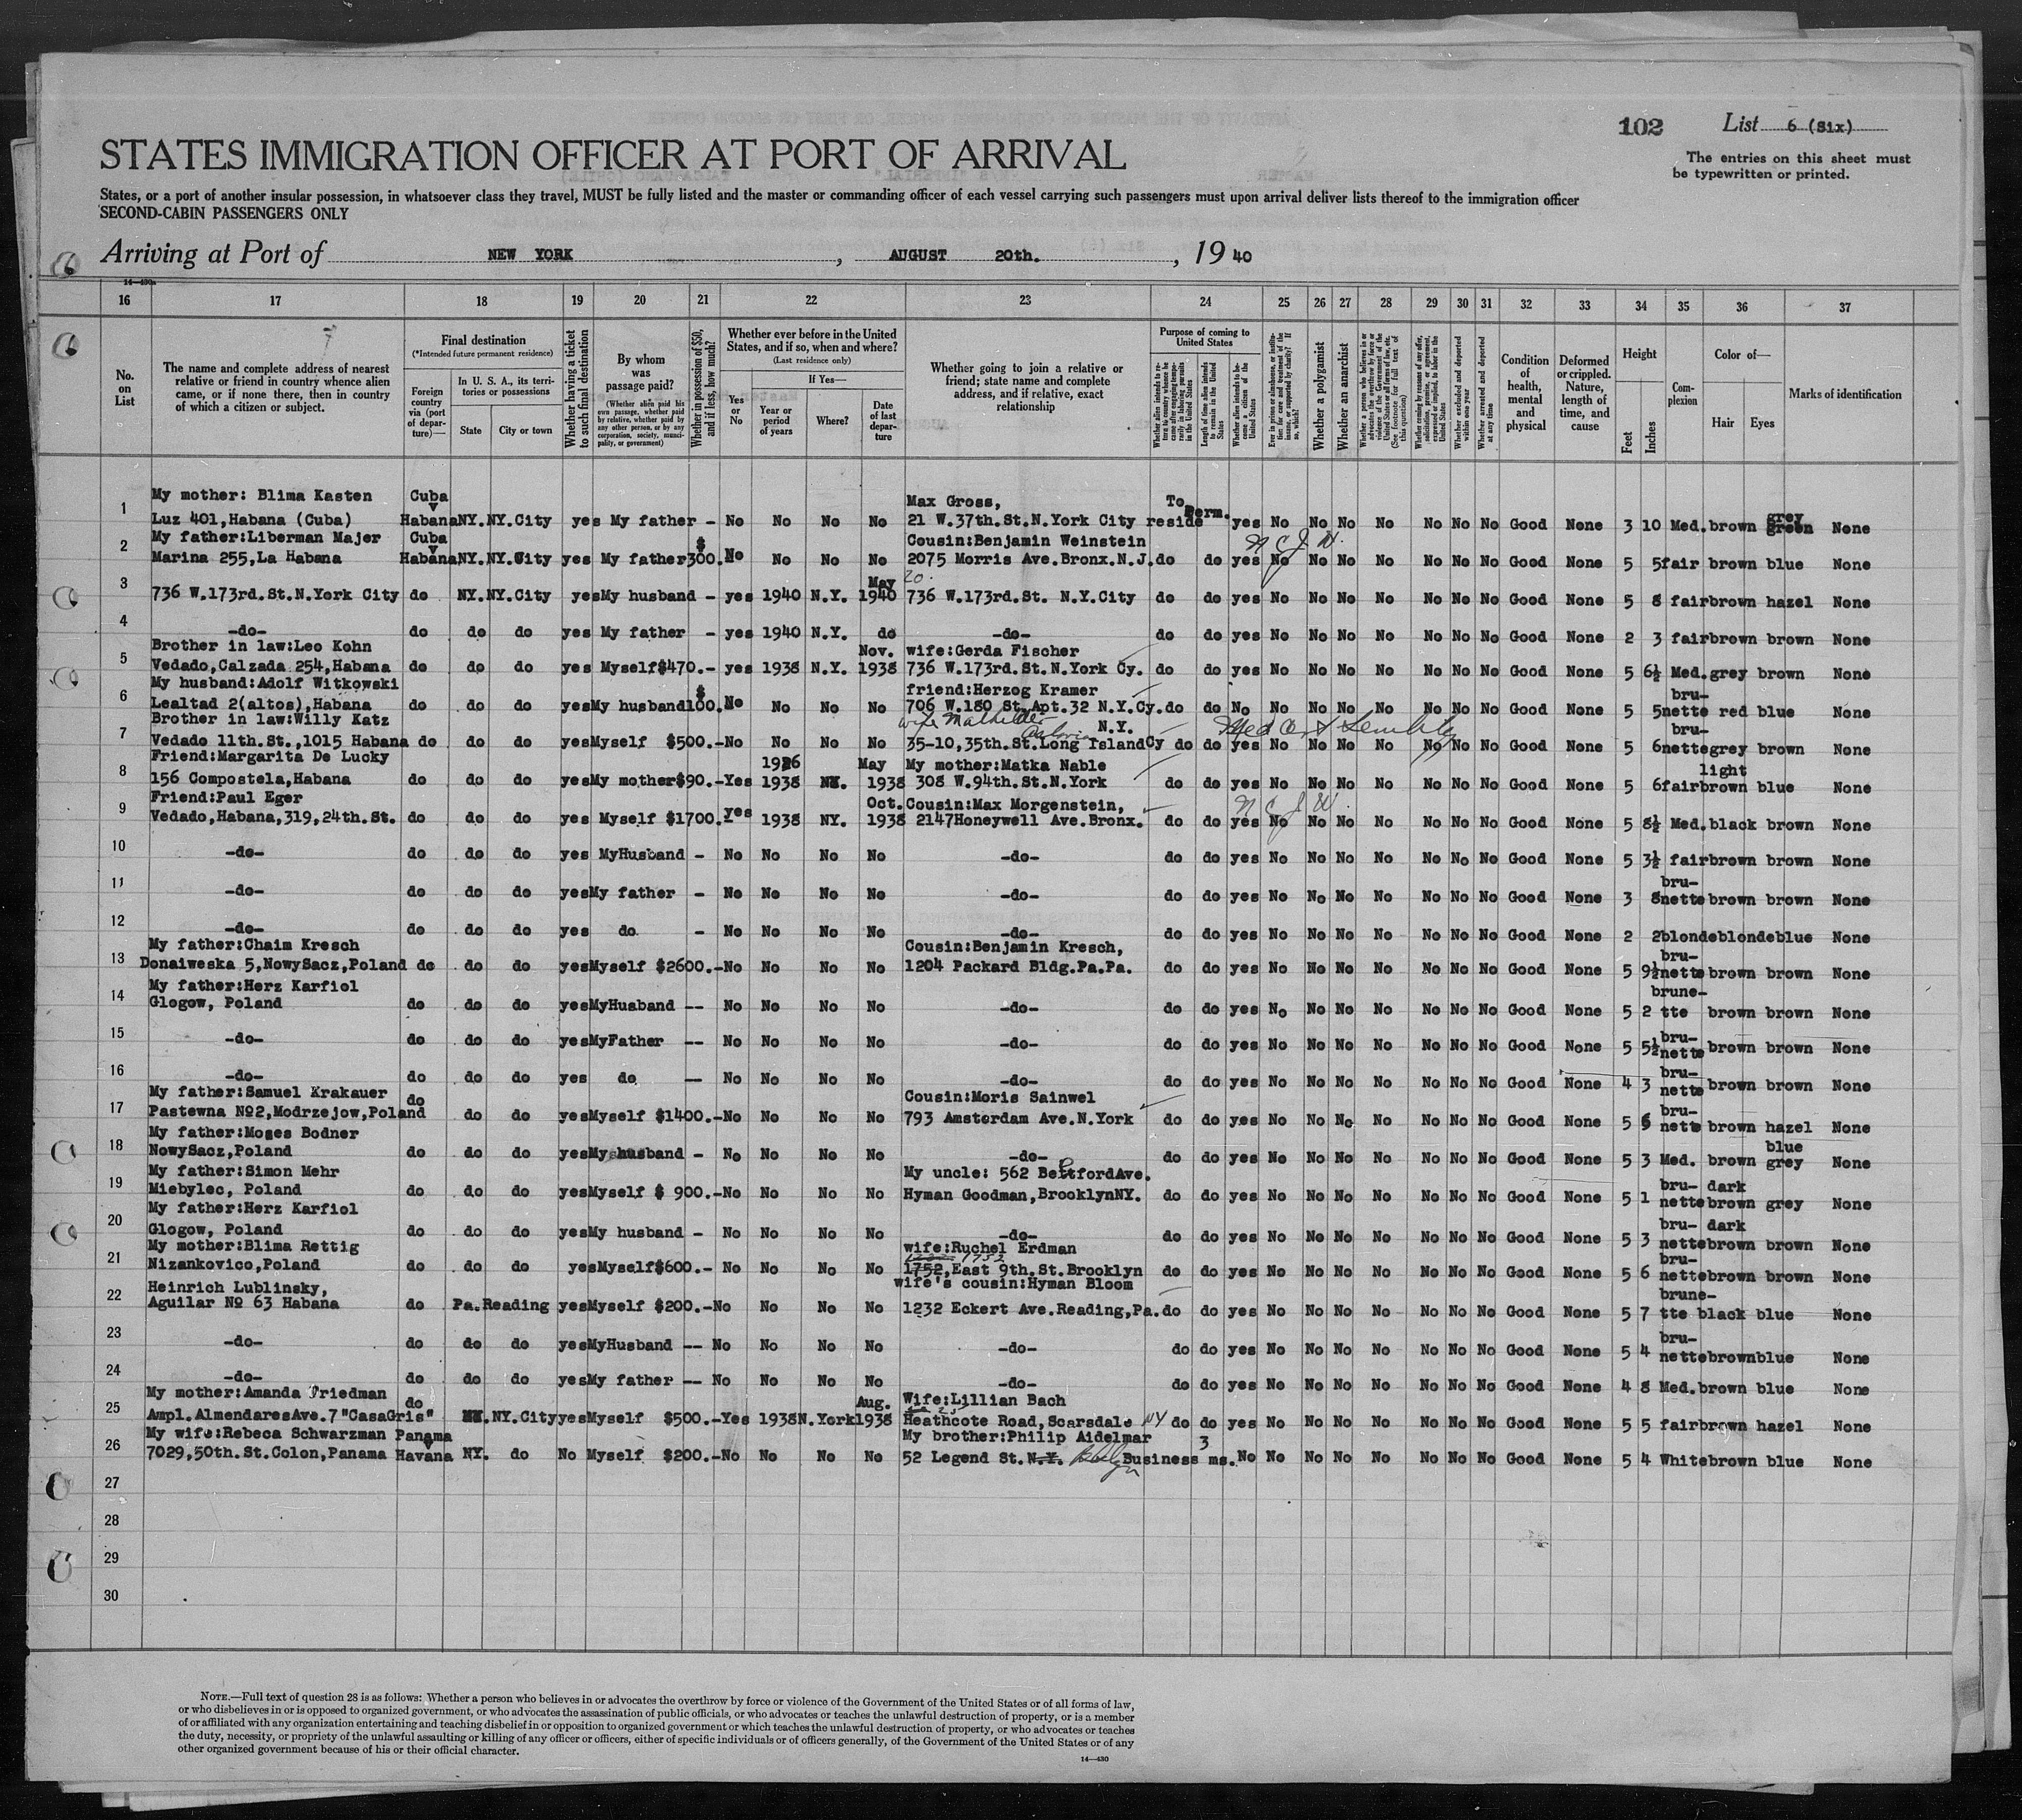 102 List 6 (Six)
STATES IMMIGRATION OFFICER AT PORT OF ARRIVAL
The entries on this sheet must
be typewritten or printed.
States, or a port of another insular possession, in whatsoever class they travel, MUST be fully listed and the master or commanding officer of each vessel carrying such passengers must upon arrival deliver lists thereof to the immigration officer
SECOND-CABIN PASSENGERS ONLY
Arriving at Port of NEW YORK, AUGUST 20th., 19 40
16 17 18 19 20 21 22 23 24 25 26 27 28 29 30 31 32 33 34 35 36 37
No. on List
The name and complete address of nearest relative or friend in country whence alien came, or if none there, then in country of which a citizen or subject.
Final destination
(*Intended future permanent residence)
Foreign country via (port of departure)—
In U. S. A., its territories or possessions
State City or town
Whether having a ticket to such final destination
By whom was passage paid?
(Whether alien paid his own passage, whether paid by relative, whether paid by any other person, or by any corporation, society, municipality, or government)
Whether in possession of $50, and if less, how much?
Whether ever before in the United States, and if so, when and where?
(Last residence only)
Yes or No
If Yes—
Year or period of years
Where?
Date of last departure
Whether going to join a relative or friend; state name and complete address, and if relative, exact relationship
Purpose of coming to United States
Length of time alien intends to remain in the United States
Whether alien intends to become a citizen of the United States
Whether a polygamist
Whether an anarchist
Whether excluded and deported within one year
Whether arrested and deported at any time
Condition of health, mental and physical
Deformed or crippled. Nature, length of time, and cause
Height
Feet Inches
Complexion
Color of—
Hair Eyes
Marks of identification
1 My mother: Blima Kasten Cuba Max Gross, To Perm. grey
Luz 401, Habana (Cuba) Habana NY. NY.City yes My father - No No No No 21 W.37th.St.N.York City reside yes No No No No No No No Good None 3 10 Med. brown green None
2 My father:Liberman Majer Cuba $ Cousin:Benjamin Weinstein N C J W.
Marina 255,La Habana Habana NY. NY.City yes My father 300. No No No No 2075 Morris Ave.Bronx.N.J. do do yes No No No No No No No Good None 5 5 fair brown blue None
3 May 20.
736 W.173rd.St.N.York City do NY. NY.City yes My husband - yes 1940 N.Y. 1940 736 W.173rd.St. N.Y.City do do yes No No No No No No No Good None 5 8 fair brown hazel None
4 -do- do do do yes My father - yes 1940 N.Y. do -do- do do yes No No No No No No No Good None 2 3 fair brown brown None
5 Brother in law:Leo Kohn Nov. wife:Gerda Fischer
Vedado,Calzada 254,Habana do do do yes Myself $470.- yes 1938 N.Y. 1938 736 W.173rd.St.N.York Cy. do do yes No No No No No No No Good None 5 6½ Med. grey brown None
6 My husband:Adolf Witkowski $ friend:Herzog Kramer bru-
Lealtad 2(altos),Habana do do do yes My husband 100. No No No No 706 W.180 St.Apt.32 N.Y.Cy. do do No No No No No No No No Good None 5 5 nette red blue None
7 Brother in law:Willy Katz wife Mathilde Astoria N.Y. Med Cert Senility bru-
Vedado 11th.St.,1015 Habana do do do yes Myself $500.- No No No No 35-10,35th.St.Long Island Cy do do yes No No No No No No No Good None 5 6 nette grey brown None
8 Friend:Margarita De Lucky 1926 May My mother:Matka Nable light
156 Compostela,Habana do do do yes My mother $90.- Yes 1938 NY. 1938 308 W.94th.St.N.York do do yes No No No No No No No Good None 5 6 fair brown blue None
9 Friend:Paul Eger Oct. Cousin:Max Morgenstein, N C J W.
Vedado,Habana,319,24th.St. do do do yes Myself $1700. yes 1938 NY. 1938 2147 Honeywell Ave.Bronx. do do yes No No No No No No No Good None 5 8½ Med. black brown None
10 -do- do do do yes MyHusband - No No No No -do- do do yes No No No No No No No Good None 5 3½ fair brown brown None
11 -do- do do do yes My father - No No No No -do- do do yes No No No No No No No Good None 3 8 bru-nette brown brown None
12 -do- do do do yes do - No No No No -do- do do yes No No No No No No No Good None 2 2 blonde blonde blue None
13 My father:Chaim Kresch Cousin:Benjamin Kresch, bru-
Donaiweska 5,NowySacz,Poland do do do yes Myself $2600.- No No No No 1204 Packard Bldg.Pa.Pa. do do yes No No No No No No No Good None 5 9½ nette brown brown None
14 My father:Herz Karfiol brune-
Glogow, Poland do do do yes MyHusband -- No No No No -do- do do yes No No No No No No No Good None 5 2 tte brown brown None
15 -do- do do do yes MyFather -- No No No No -do- do do yes No No No No No No No Good None 5 5½ bru-nette brown brown None
16 -do- do do do yes do -- No No No No -do- do do yes No No No No No No No Good None 4 3 bru-nette brown brown None
17 My father:Samuel Krakauer do Cousin:Moris Sainwel bru-
Pastewna Nº2,Modrzejow,Poland do do yes Myself $1400.- No No No No 793 Amsterdam Ave.N.York do do yes No No No No No No No Good None 5 6 nette brown hazel None
18 My father:Moses Bodner blue
NowySacz,Poland do do do yes My husband - No No No No -do- do do yes No No No No No No No Good None 5 3 Med. brown grey None
19 My father:Simon Mehr My uncle: 562 BedfordAve. bru- dark
Miebylec, Poland do do do yes Myself $ 900.- No No No No Hyman Goodman,BrooklynNY. do do yes No No No No No No No Good None 5 1 nette brown grey None
20 My father:Herz Karfiol bru- dark
Glogow, Poland do do do yes My husband - No No No No -do- do do yes No No No No No No No Good None 5 3 nette brown brown None
21 My mother:Blima Rettig wife:Ruchel Erdman bru-
Nizankovico,Poland do do do yes Myself $600.- No No No No 1752,East 9th.St.Brooklyn do do yes No No No No No No No Good None 5 6 nette brown brown None
22 Heinrich Lublinsky, wife's cousin:Hyman Bloom brune-
Aguilar Nº 63 Habana do Pa. Reading yes Myself $200.- No No No No 1232 Eckert Ave.Reading,Pa. do do yes No No No No No No No Good None 5 7 tte black blue None
23 -do- do do do yes MyHusband -- No No No No -do- do do yes No No No No No No No Good None 5 4 bru-nette brown blue None
24 -do- do do do yes My father -- No No No No -do- do do yes No No No No No No No Good None 4 8 Med. brown blue None
25 My mother:Amanda Friedman do Aug. Wife:Lillian Bach
Ampl.AlmendaresAve.7 "CasaGris" NY. NY.City yes Myself $500.- Yes 1938 N.York 1938 Heathcote Road,Scarsdale NY do do yes No No No No No No No Good None 5 5 fair brown hazel None
26 My wife:Rebeca Schwarzman Panama My brother:Philip Aidelmar 3
7029,50th.St.Colon,Panama Havana NY. do No Myself $200.- No No No No 52 Legend St.N.Y. Bklyn Business ms. No No No No No No No No Good None 5 4 White brown blue None
27
28
29
30
NOTE.—Full text of question 28 is as follows: Whether a person who believes in or advocates the overthrow by force or violence of the Government of the United States or of all forms of law,
or who disbelieves in or is opposed to organized government, or who advocates the assassination of public officials, or who advocates or teaches the unlawful destruction of property, or is a member
of or affiliated with any organization entertaining and teaching disbelief in or opposition to organized government or which teaches the unlawful destruction of property, or who advocates or teaches
the duty, necessity, or propriety of the unlawful assaulting or killing of any officer or officers, either of specific individuals or of officers generally, of the Government of the United States or of any
other organized government because of his or their official character.
14—430